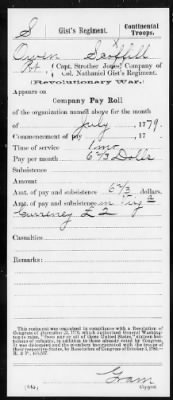 S | Gist's Regiment. | Continental Troops.
Owen
Pvt, Capt. Strother Jones' Company of
Col. Nathaniel Gist's Regiment.
(Revolutionary War.)
Appears on
Company Pay Roll
of the organization named above for the month
of July, 1779.
Commencement of pay, 17
Time of service 1 mo
Pay per month 6 2/3 Dolls
Subsistence
Amt. of pay and subsistence 6 2/3 dollars.
Amt. of pay and subsistence in
Currency £ 2
Casualties:
Remarks:
This regiment was organized in compliance with a Resolution
Gram
Copyist.